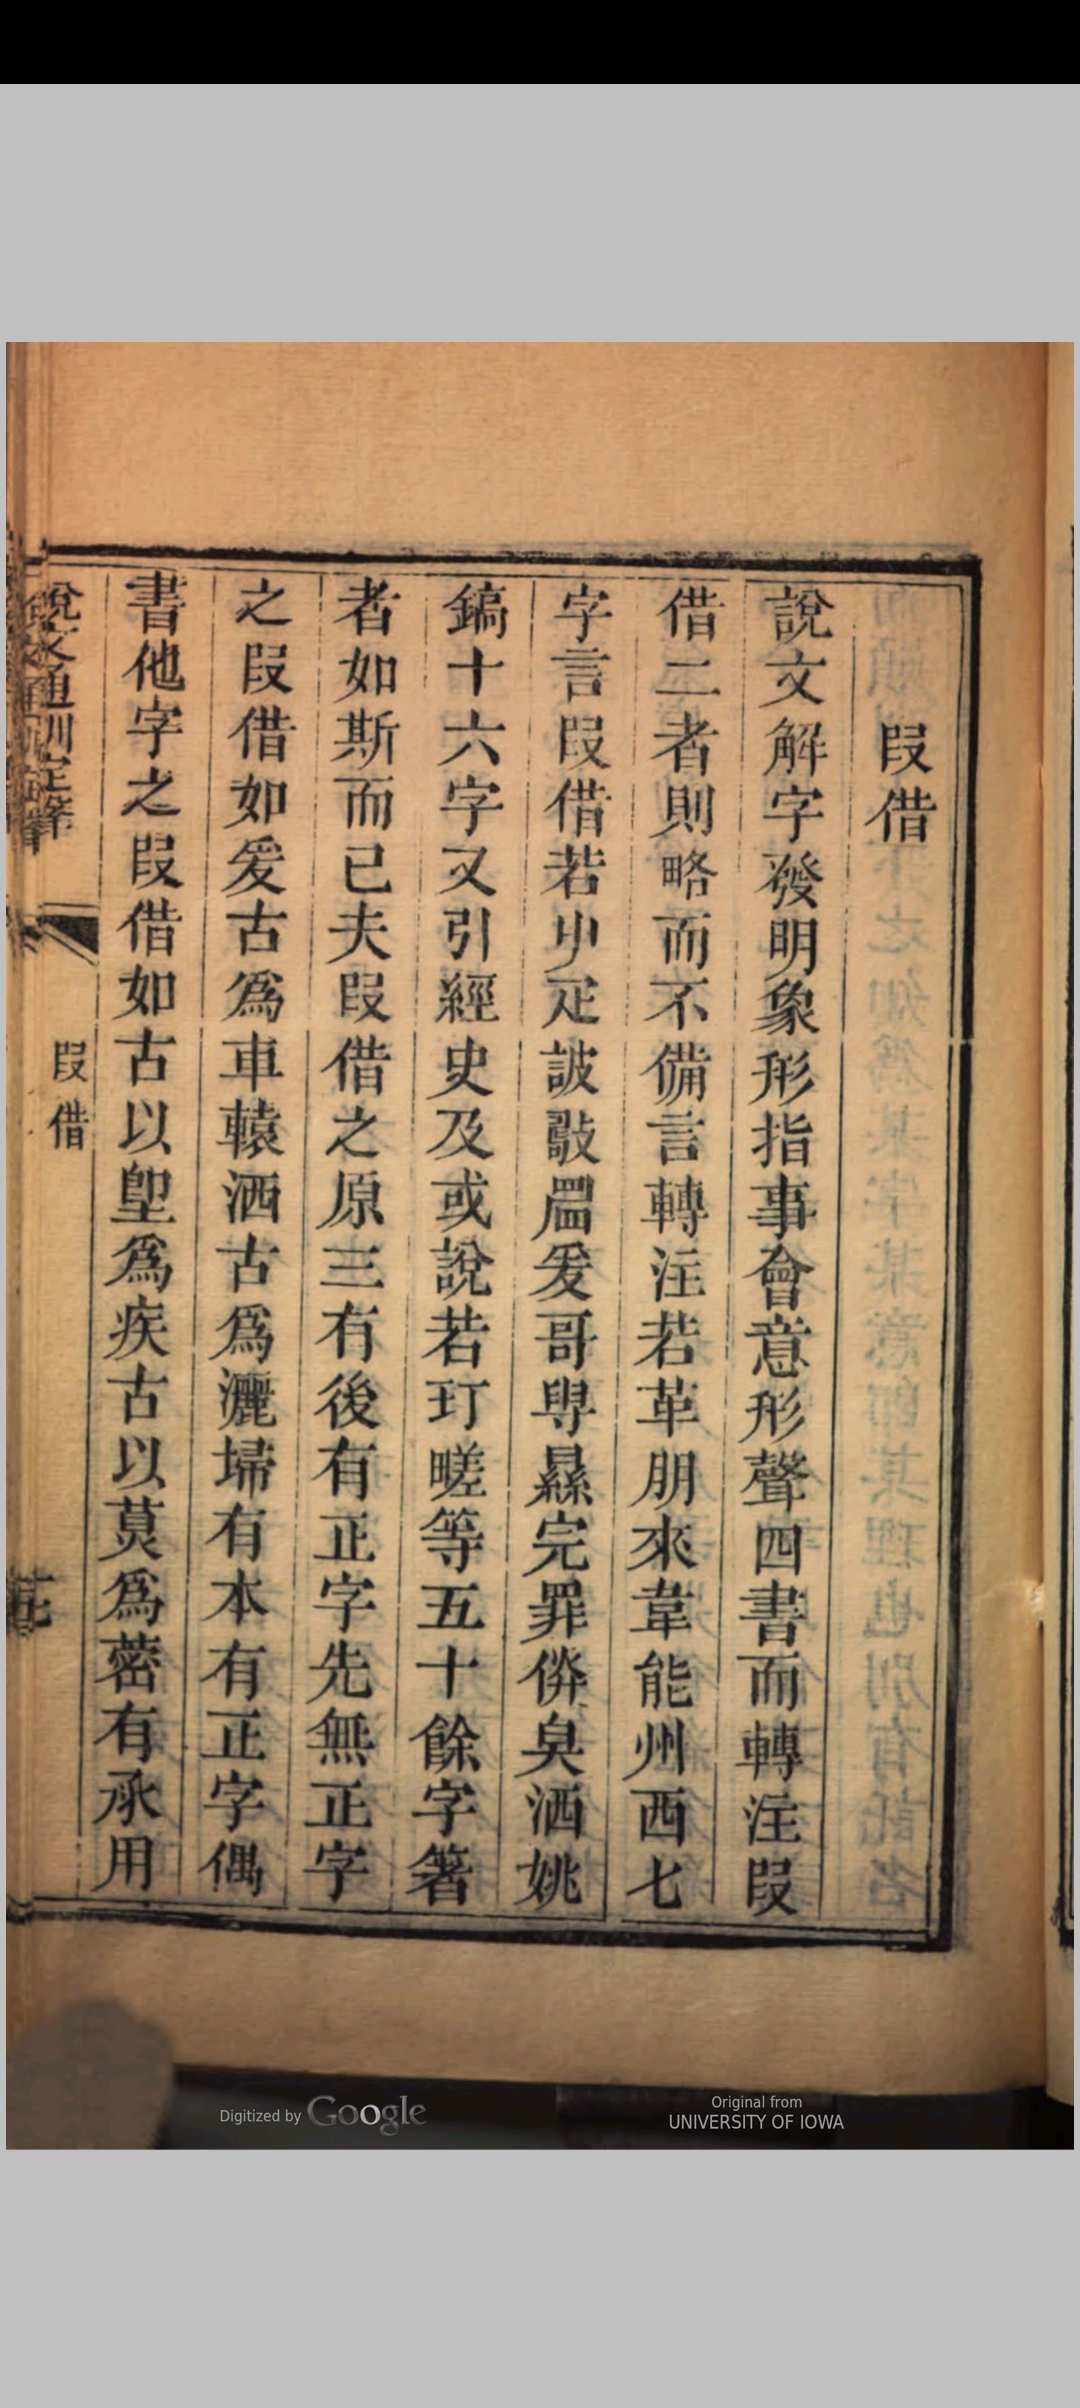 叚借
說文解字發明象形指事會意形聲四書而轉注叚
借二者則略而不備言轉注若革朋來韋能州西七
字言叚借若屮疋詖𢾭𥇛爰哥𢍏㬎完罪㑞臭洒姚
鎬十六字又引經史及或說若玎㽨等五十餘字箸
者如斯而已夫叚借之原三有後有正字先無正字
之叚借如爰古爲車轅洒古爲灑埽有本有正字偶
書他字之叚借如古以堲爲疾古以莫爲蔤有承用
說文通訓定聲
叚借
Digitized by Google
Original from
UNIVERSITY OF IOWA